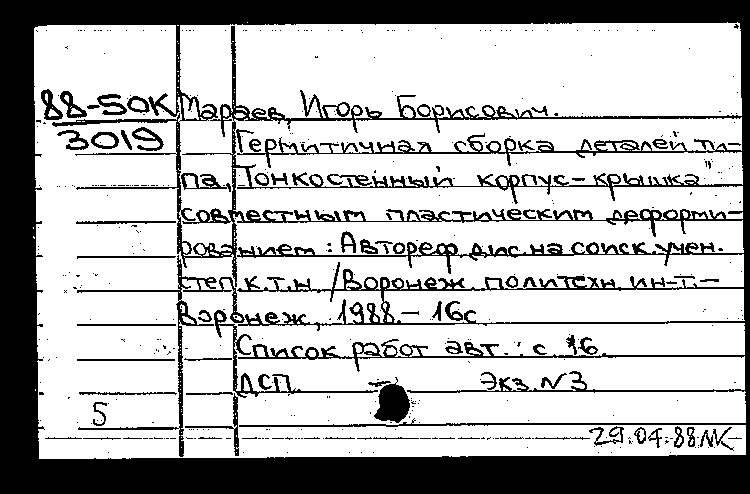 88-50К Мараев, Игорь Борисович.
3019 Гермитичная сборка деталей ти-
па "Тонкостенный корпус-крышка"
совместным пластическим деформи-
рованием: Автореф. дис. на соиск. учен.
степ. к.т.н. /Воронеж. политехн. ин-т.-
Воронеж, 1988.- 16с.
Список работ авт.: с 16.
ДСП. Экз. N3
5
29.04.88